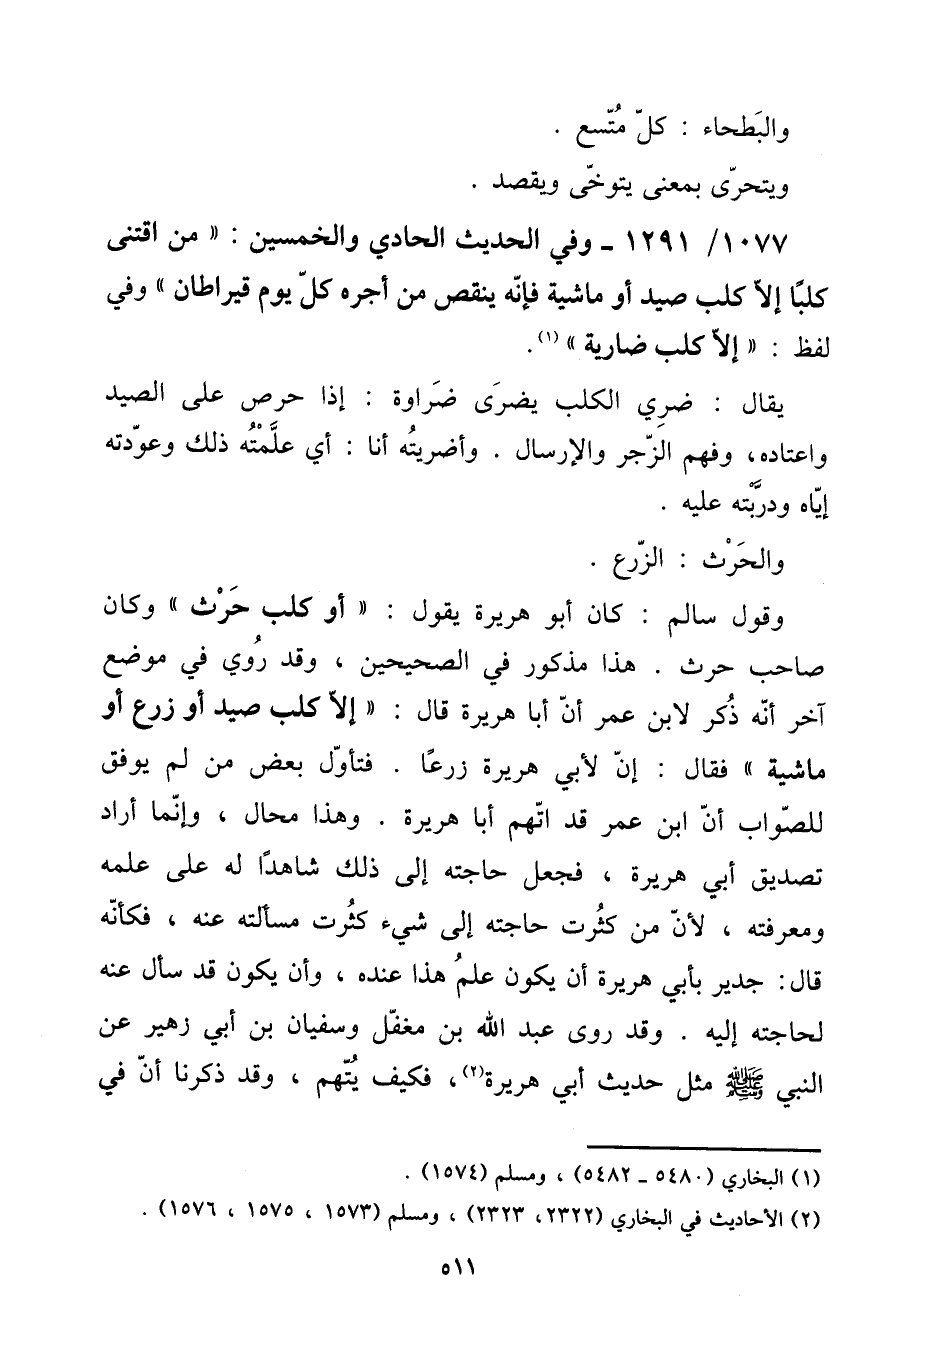 والبَطحاء : كلّ مُتّسع .
ويتحرّى بمعنى يتوخّى ويقصد .
١٠٧٧/ ١٢٩١ ـ وفي الحديث الحادي والخمسين : « من اقتنى
كلبًا إلاّ كلب صيد أو ماشية فإنّه ينقص من أجره كلّ يوم قيراطان » وفي
لفظ : « إلاّ كلب ضارية »(١).
يقال : ضرِي الكلب يضرَى ضَراوة : إذا حرص على الصيد
واعتاده، وفهم الزّجر والإرسال . وأضريتُه أنا : أي علَّمْتُه ذلك وعوّدته
إيّاه ودربَّتْه عليه .
والحَرْث : الزّرع .
وقول سالم : كان أبو هريرة يقول : « أو كلب حَرْث » وكان
صاحب حرث . هذا مذكور في الصحيحين ، وقد رُوي في موضع
آخر أنّه ذُكر لابن عمر أنّ أبا هريرة قال : « إلاّ كلب صيد أو زرع أو
ماشية » فقال : إنّ لأبي هريرة زرعًا . فتأوّل بعض من لم يوفق
للصّواب أنّ ابن عمر قد اتّهم أبا هريرة . وهذا محال ، وإنّما أراد
تصديق أبي هريرة ، فجعل حاجته إلى ذلك شاهدًا له على علمه
ومعرفته ، لأنّ من كثُرت حاجته إلى شيء كثُرت مسألته عنه ، فكأنّه
قال: جدير بأبي هريرة أن يكون علمُ هذا عنده ، وأن يكون قد سأل عنه
لحاجته إليه . وقد روى عبد الله بن مغفّل وسفيان بن أبي زهير عن
النبي ﷺ مثل حديث أبي هريرة(٢)، فكيف يُتّهم ، وقد ذكرنا أنّ في
(١) البخاري (٥٤٨٠ ـ ٥٤٨٢) ، ومسلم (١٥٧٤) .
(٢) الأحاديث في البخاري (٢٣٢٢، ٢٣٢٣) ، ومسلم (١٥٧٣ ، ١٥٧٥ ، ١٥٧٦) .
٥١١